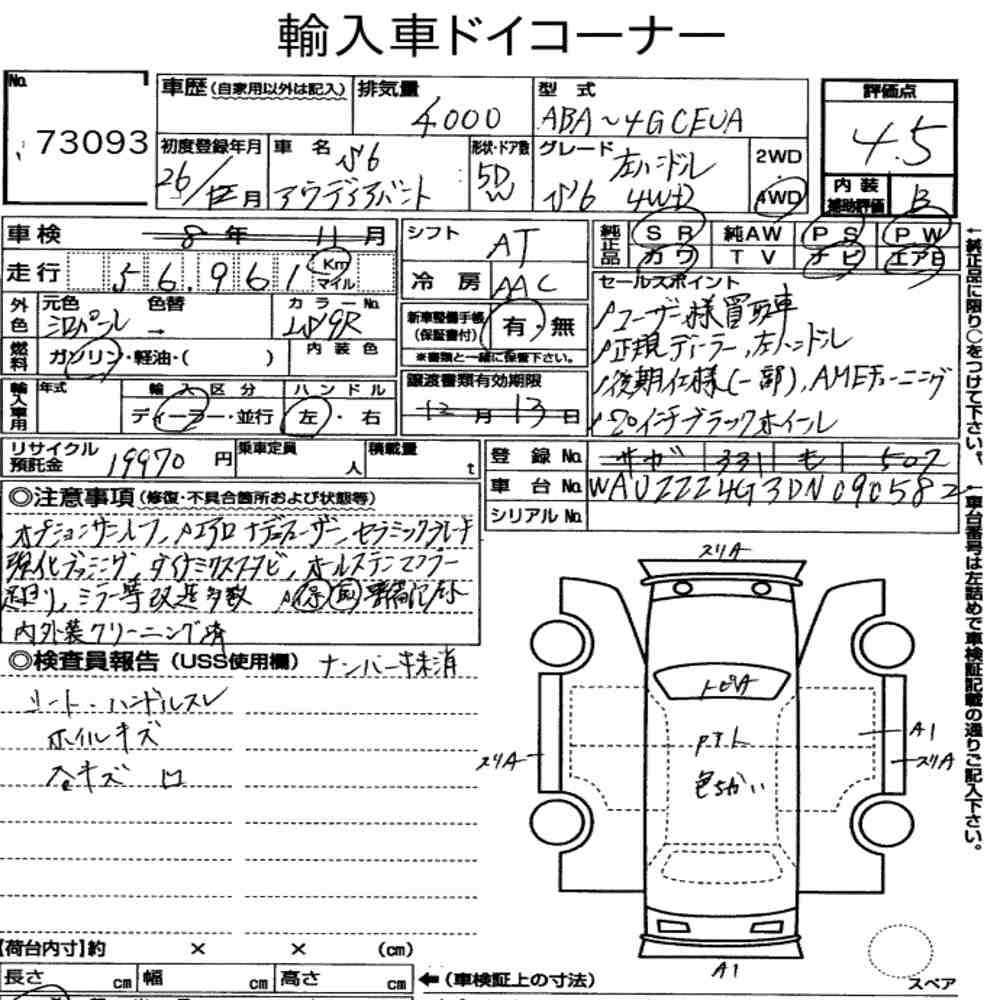 輸入車ドイコーナー
No. 73093
車歴(自家用以外は記入) 排気量 4000 型式 ABA~4GCEUA 評価点 4.5
初度登録年月 26/12月 車名 S6 アウディアバント 形状・ドア数 5D W グレード 左ハンドル S6 4WD 2WD 4WD
内装補助評価 B
車検 8年 11月 シフト AT 純正品 SR 純AW PS PW
走行 56.961 Km マイル 冷房 AAC カワ TV ナビ エアB
外色 元色 シロパール 色替 → カラーNo. LS9R 新車整備手帳(保証書付) 有・無
※書類と一緒に保管下さい。
燃料 ガソリン・軽油・( ) 内装色
セールスポイント
ユーザー様買取車
正規ディーラー、左ハンドル
後期仕様(一部)、AMEチューニング
20インチブラックホイール
輸入車用 年式 輸入区分 ディーラー・並行 ハンドル 左・右 譲渡書類有効期限 12月13日
リサイクル預託金 19970円 乗車定員 人 積載量 t
登録No. サガ 331 も 507
車台No. WAUZZZ4G3DN090582
シリアルNo.
◎注意事項(修復・不具合箇所および状態等)
オプションサンルーフ、エアロ ナデューザー、セラミックブレーキ
強化ブッシング、ダイナミクススタビ、オールステンマフラー
足回り、ミラー等改造多数 保 取 整備記録
内外装クリーニング済
◎検査員報告(USS使用欄) ナンバー抹消
シート・ハンドルスレ
ホイルキズ
キズ
スリA
トビA
P.S.L
色ちがい
A1
スリA
スリA
A1
スペア
【荷台内寸】約 × × (cm)
長さ cm 幅 cm 高さ cm ←(車検証上の寸法)
←純正品に限り○をつけて下さい。
↑車台番号は左詰めで車検証記載の通りご記入下さい。